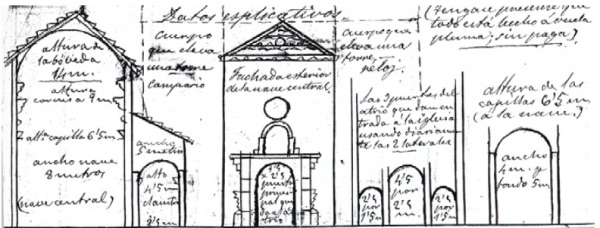 Datos explicativos
(Téngase presente que
todo está hecho a vuela
pluma, sin pega)
altura de
la bóveda
14 m.
altura
cornisa 9 m
altª capilla 6'5 m
ancho nave
8 metros
(nave central)
ancho
5 metros
alto
4'5 m
claustro
2'5 m
cuerpo
que eleva
una torre
campario
Fachada exterior
de la nave central.
2'5
puerta
princi-
pal que
cuerpo que
eleva una
torre,
reloz
Las 3 puertas del
atrio que dan en-
trada a la iglesia
usando diariamen-
te las 2 laterales
2'5
por
1'5 m
4'5
por
2'5
m
2'5
por
1'5 m
altura de las
capillas 6'5 m
(a la nave)
ancho
4 m. y
fondo 5 m